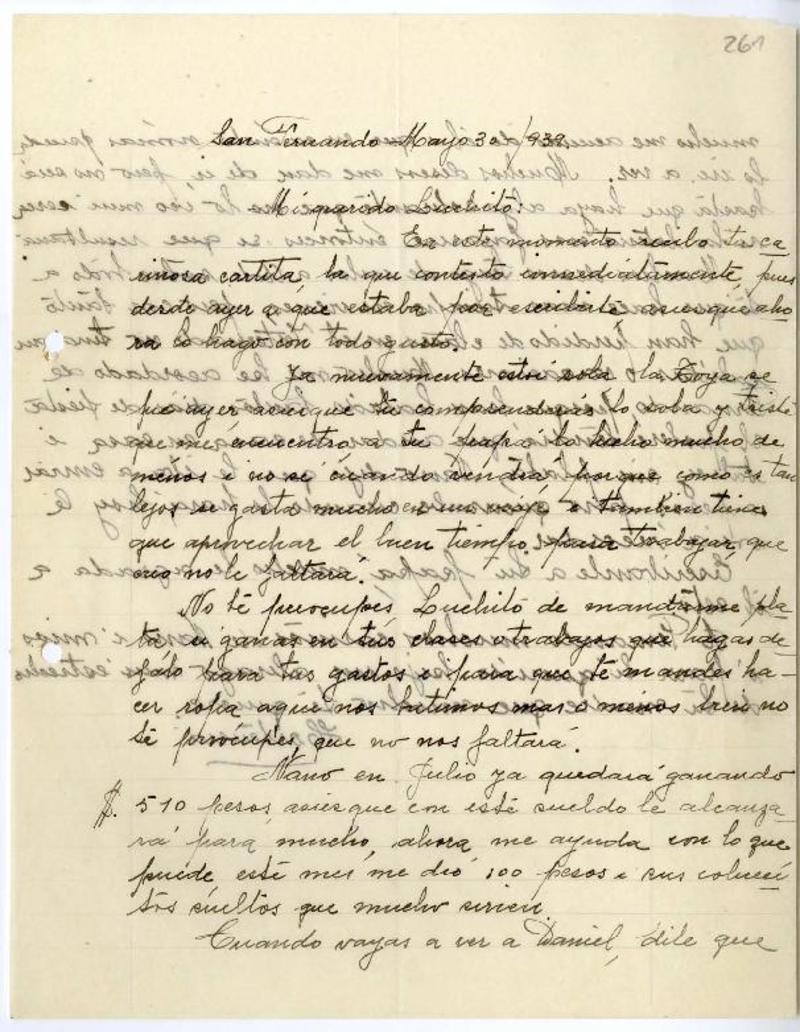 261
San Fernando Mayo 30/939.
Mi querido Luchito:
En este momento recibo tu ca
riñosa cartita, la que contesto inmediatamente, pues
desde ayer q que estaba por escribirte, asies que aho
ra lo hago con todo gusto.
Ya nuevamente estoi sola la Toya se
fué ayer asi que tu comprenderás lo sola y triste
que me encuentro, a tu papá lo hecho mucho de
menos i no sé cuando vendrá porque como es tan
lejos se gasta mucho en un viaje i tambien tiene
que aprovechar el buen tiempo para trabajar, que
eso no le faltará.
No te preocupes, Luchito de mandarme pla
ta, si ganas en tus clases o trabajos que hagas de
jalo para tus gastos i para que te mandes ha-
cer ropa aqui nos batimos mas o menos bien no
te preocupes, que no nos faltará.
Nano en Julio ya quedará ganando
$. 510 pesos, asies que con este sueldo le alcanza
rá para mucho, ahora me ayuda con lo que
puede, este mes me dió 100 pesos i sus
tos sueltos que mucho sirven.
Cuando vayas a ver a Daniel, dile que